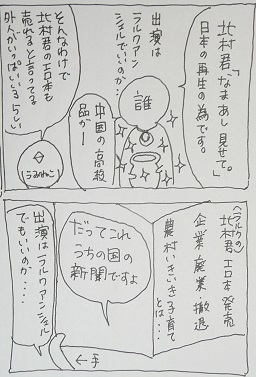 北村君、「なまあし見せて。」
日本の再生の為です。
出演は
ラルクアン
シェルでいいのか…?
誰
中国の高校
品かー
そんなわけで
北村君のエロ本も
売れると言ってる
外人がいっぱいいるらしい
(うるのねこ)
(ラルクの)
北村君エロ本発売
企業廃業・撤退
農村いきいき子育て
とは…
だってこれ
うちの国の
新聞ですよ
出演はラルクアンシェル
でもいいのか…
←手